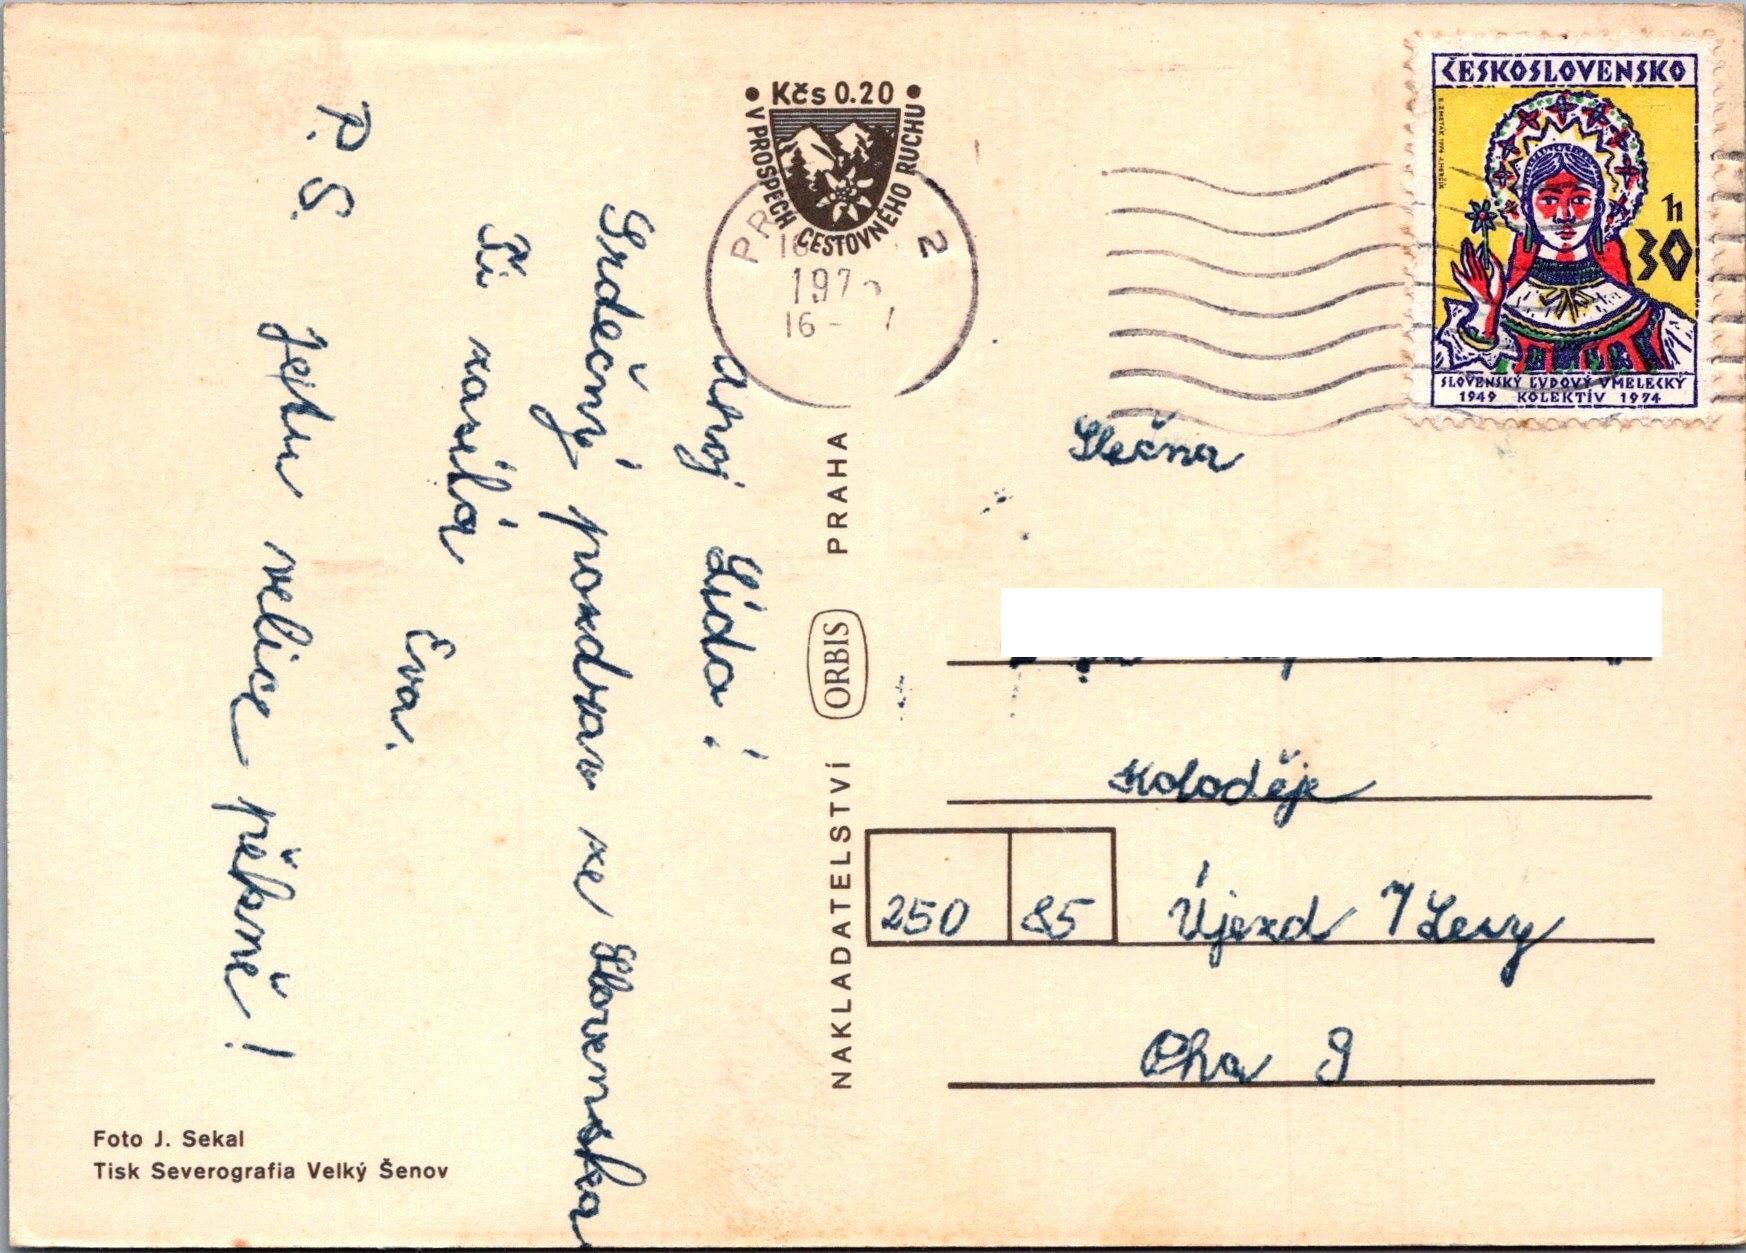 Ahoj Lído!
Srdečný pozdrav ze Slovenska
Ti zasílá
Eva.
P.S. Je tu velice pěkně!
Foto J. Sekal
Tisk Severografia Velký Šenov
• Kčs 0.20 •
V PROSPECH CESTOVNÉHO RUCHU
2
16
197
16 -
NAKLADATELSTVÍ ORBIS PRAHA
ČESKOSLOVENSKO
h
30
SLOVENSKÝ ĽUDOVÝ UMELECKÝ
1949 KOLEKTÍV 1974
Slečna
Koloděje
250 85 Újezd / Lesy
Pha 9